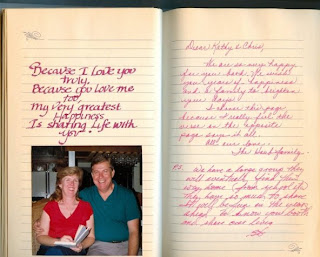 Because I love you
truly,
Because you love me
too,
my very greatest
Happiness
Is sharing life with
you
Dear Kathy & Chris,
We are so very happy
for you both. We wish
you years of happiness
and a family to brighten
your days!
I chose this page
because I really feel the
verse on the opposite
page says it all.
All our love,
The family
P.S. We have a large group they
will eventually
(from school)
They have so much to share
in the years
ahead. To know you both
and share our lives